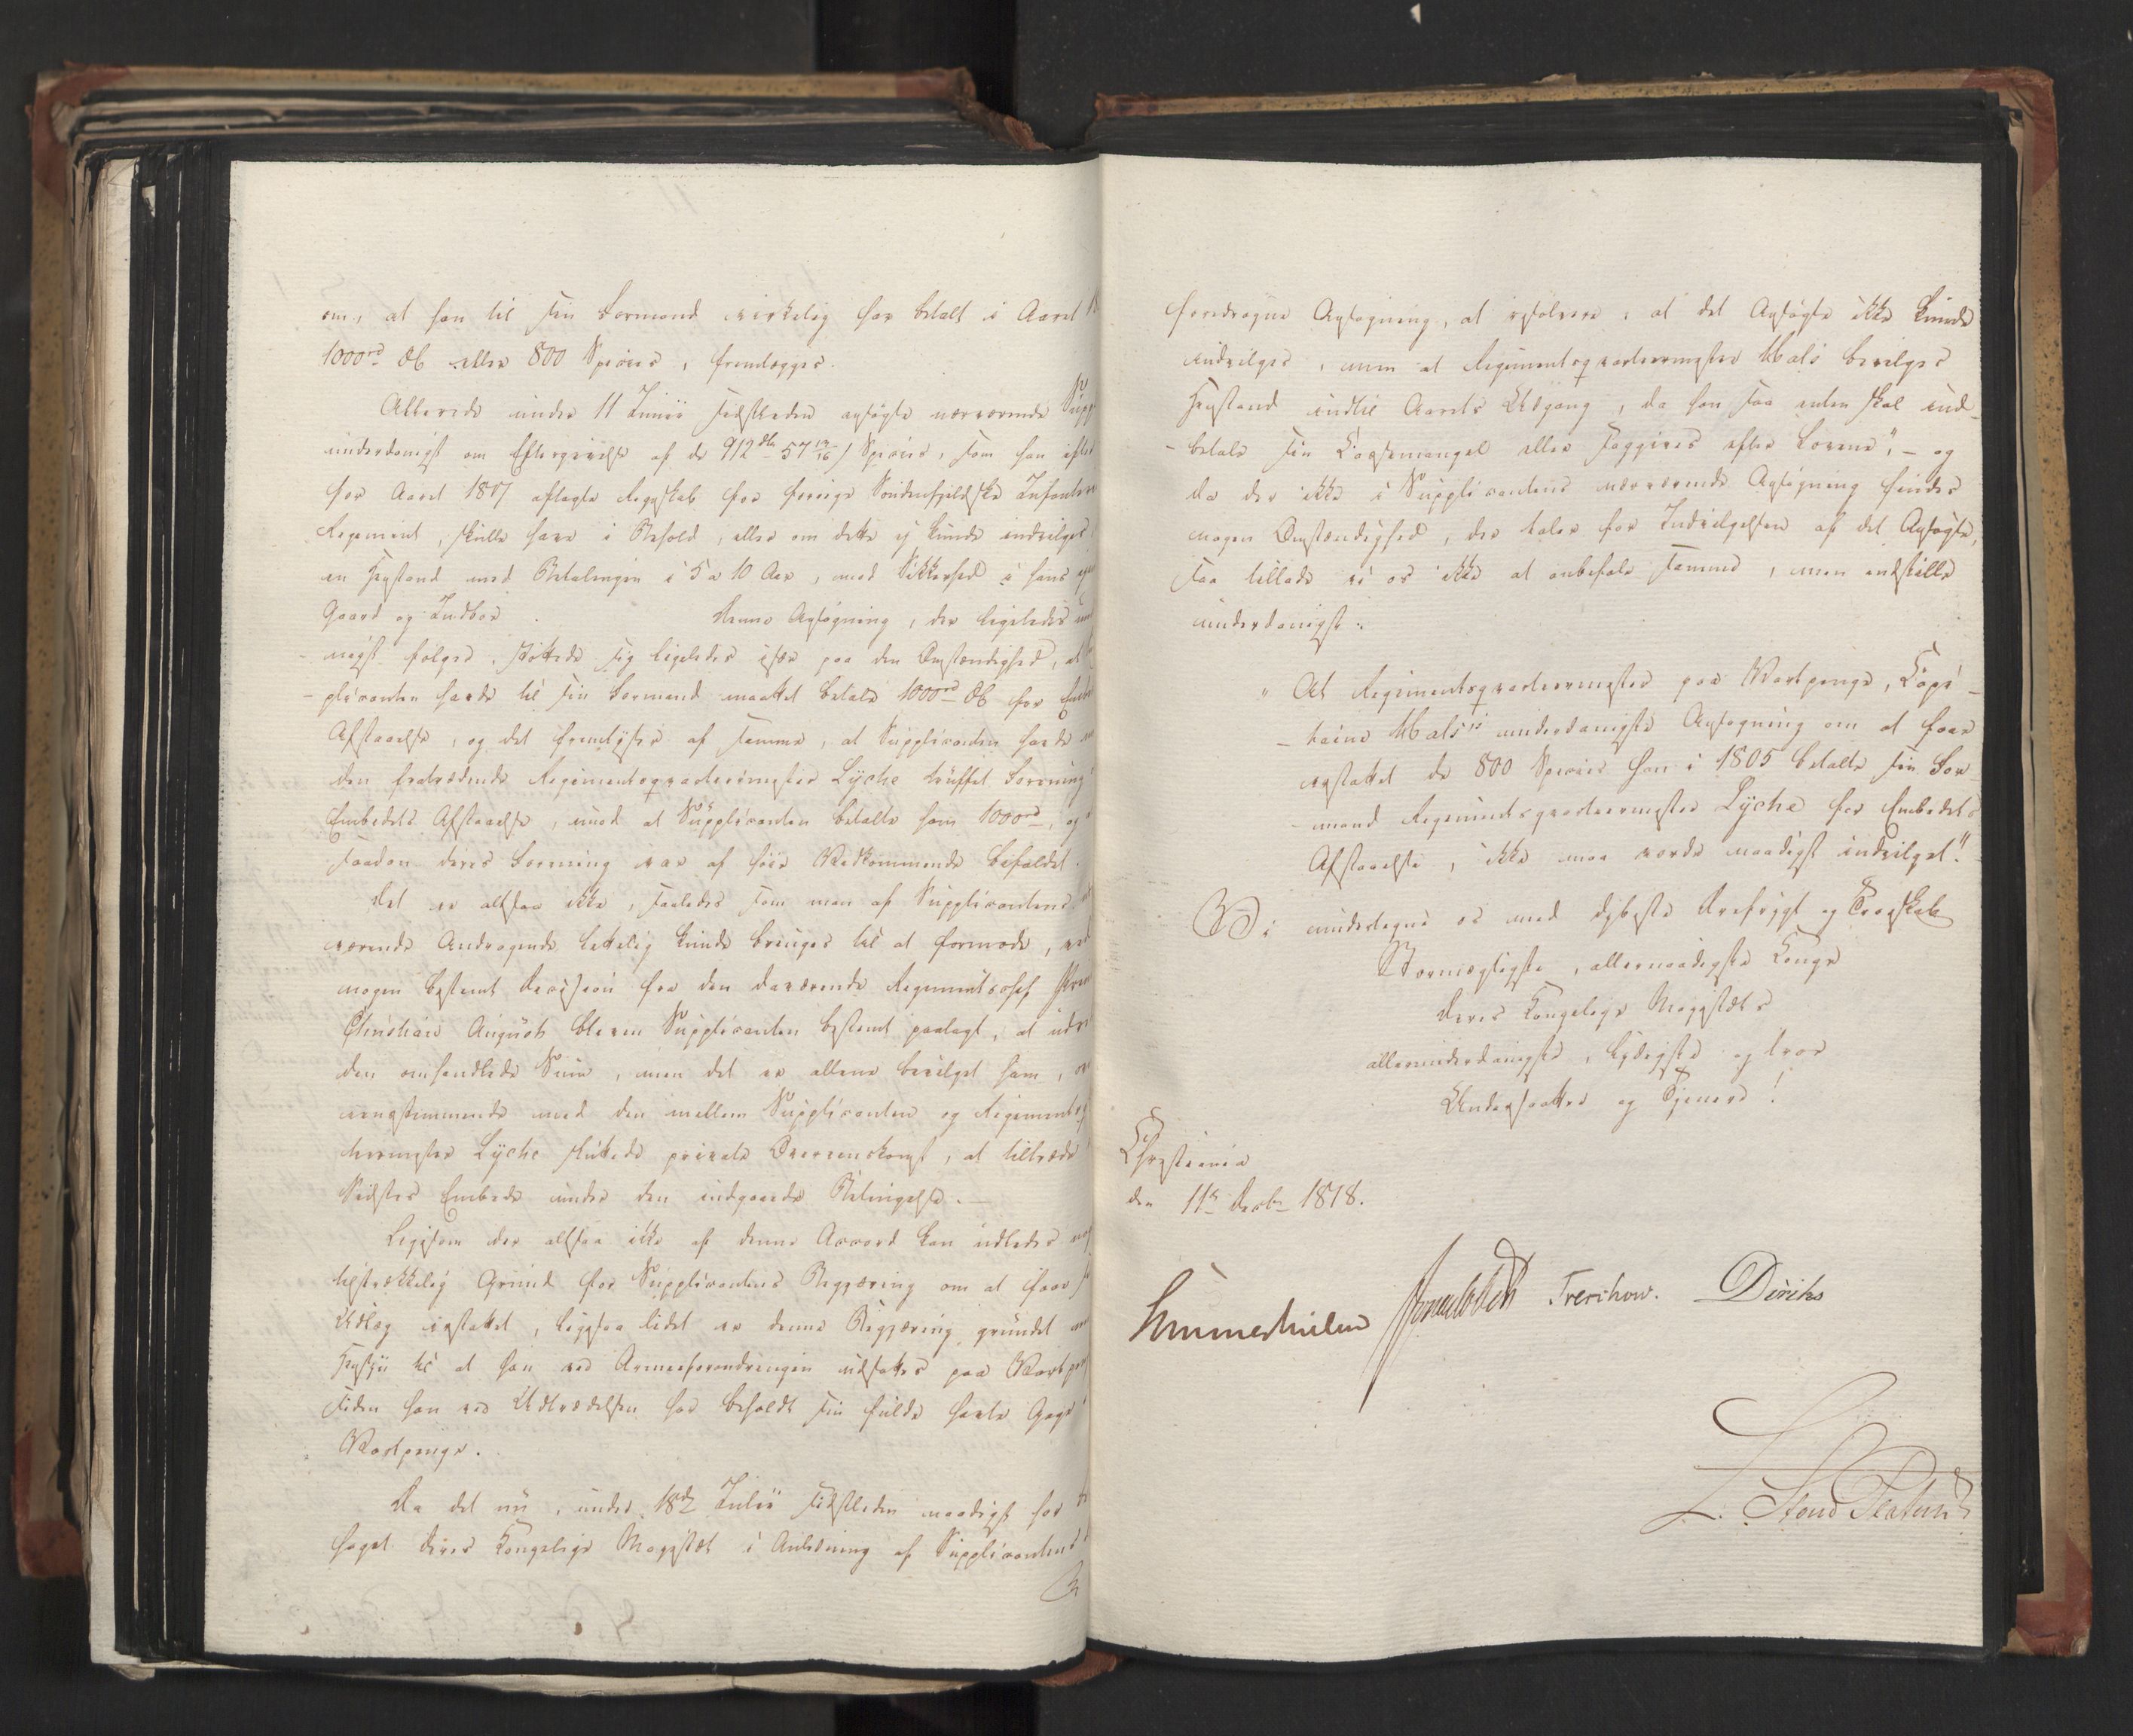 om, at han til sin Formand virkelig har betalt i Aaret 18
1000rd DC eller 800 Specier, fremlægges.
Allerede under 11 Junii sidstleden ansøgte nærværende Supp
underdanigst om Eftergivelse af de 912 57 19/16 / Specier, som han efter
for Aaret 1817 aflagte Regnskab for forrige Søndenfjeldske Infanterie
Regiment, skulle have i Behold, eller om dette ej kunde indvilges,
en Henstand med Betalingen i 5 a 10 Aar, mod Sikkerhed i hans
Gaard og Indboe. Denne Ansøgning, der ligeledes
følger, støttede sig ligeledes især paa den Omstændighed, at
plicanten havde til sin Formand maattet betale 1000rd DC for
Afstaaelse, og det fremlyser af samme, at Supplicanten havde
den fratrædende Regimentsqvarteermester Lyche truffet Forening
Embedets Afstaaelse, imod at Supplicanten betalte ham 1000rd, og
saadan deres Forening var af høie Vedkommende bifaldet.
Det er altsaa ikke, saaledes som man af Supplicantens
værende Andragende lettelig kunde bringes til at formode, ved
nogen bestemt Decision fra den daværende Regimentschef
Christian August bleven Supplicanten bestemt paalagt, at
den omhandlede Sum, men det er allene bevilget ham,
eensstemmende med den mellem Supplicanten og Regiments
teermester Lyche sluttede private Overeenskomst, at tiltræde
Sidstes Embede under den indgaaede Betingelse. —
Ligesom der altsaa ikke af denne Accord kan udledes
tilstrækkelig Grund for Supplicantens Begjæring om at faae
Udlæg erstattet, ligesaa lidet er denne Begjæring grundet
Hensyn til at han ved Armeeforandringen udsattes paa Vart
siden han ved Udtrædelsen har beholdt sin fulde havte Gage
Vartpenge.
Da det nu, under 18de Julii sidstleden naadigst har
haget Deres Kongelige Majestæt i Anledning af Supplicantens
foredragne Ansøgning, at resolvere, at det Ansøgte ikke kunde
indvilges, men at Regimentsqvarteermester Wals bevilges
Henstand indtil Aarets Udgang, da han saa enten skal ind-
- betale sin Cassemangel eller søggives efter Lovene", - og
da der ikke i Supplicantens nærværende Ansøgning findes
nogen Omstændighed, der taler for Indvilgelsen af det Ansøgte,
saa tillade vi os ikke at anbefale samme, men indstille
underdanigst:
"At Regimentsqvarteermester paa Vartpenge, Capi-
- taine Wals's underdanigste Ansøgning om at faae
erstattet de 800 Specier han i 1805 betalte sin For-
- mand Regimentsqvarteermester Lyche for Embedets
Afstaaelse, ikke maa vorde naadigst indvilget".
Vi undertegne os med dybeste Ærefrygt og Troeskab
Stormægtigste, allernaadigste Konge
Deres Kongelige Majestæts
allerunderdanigste, lydigste og troe
Undersaatter og Tjenere!
Christiania
den 11te Decbr 1818.
Sommerhielm Treschow. Diriks
L: Stoud Platou